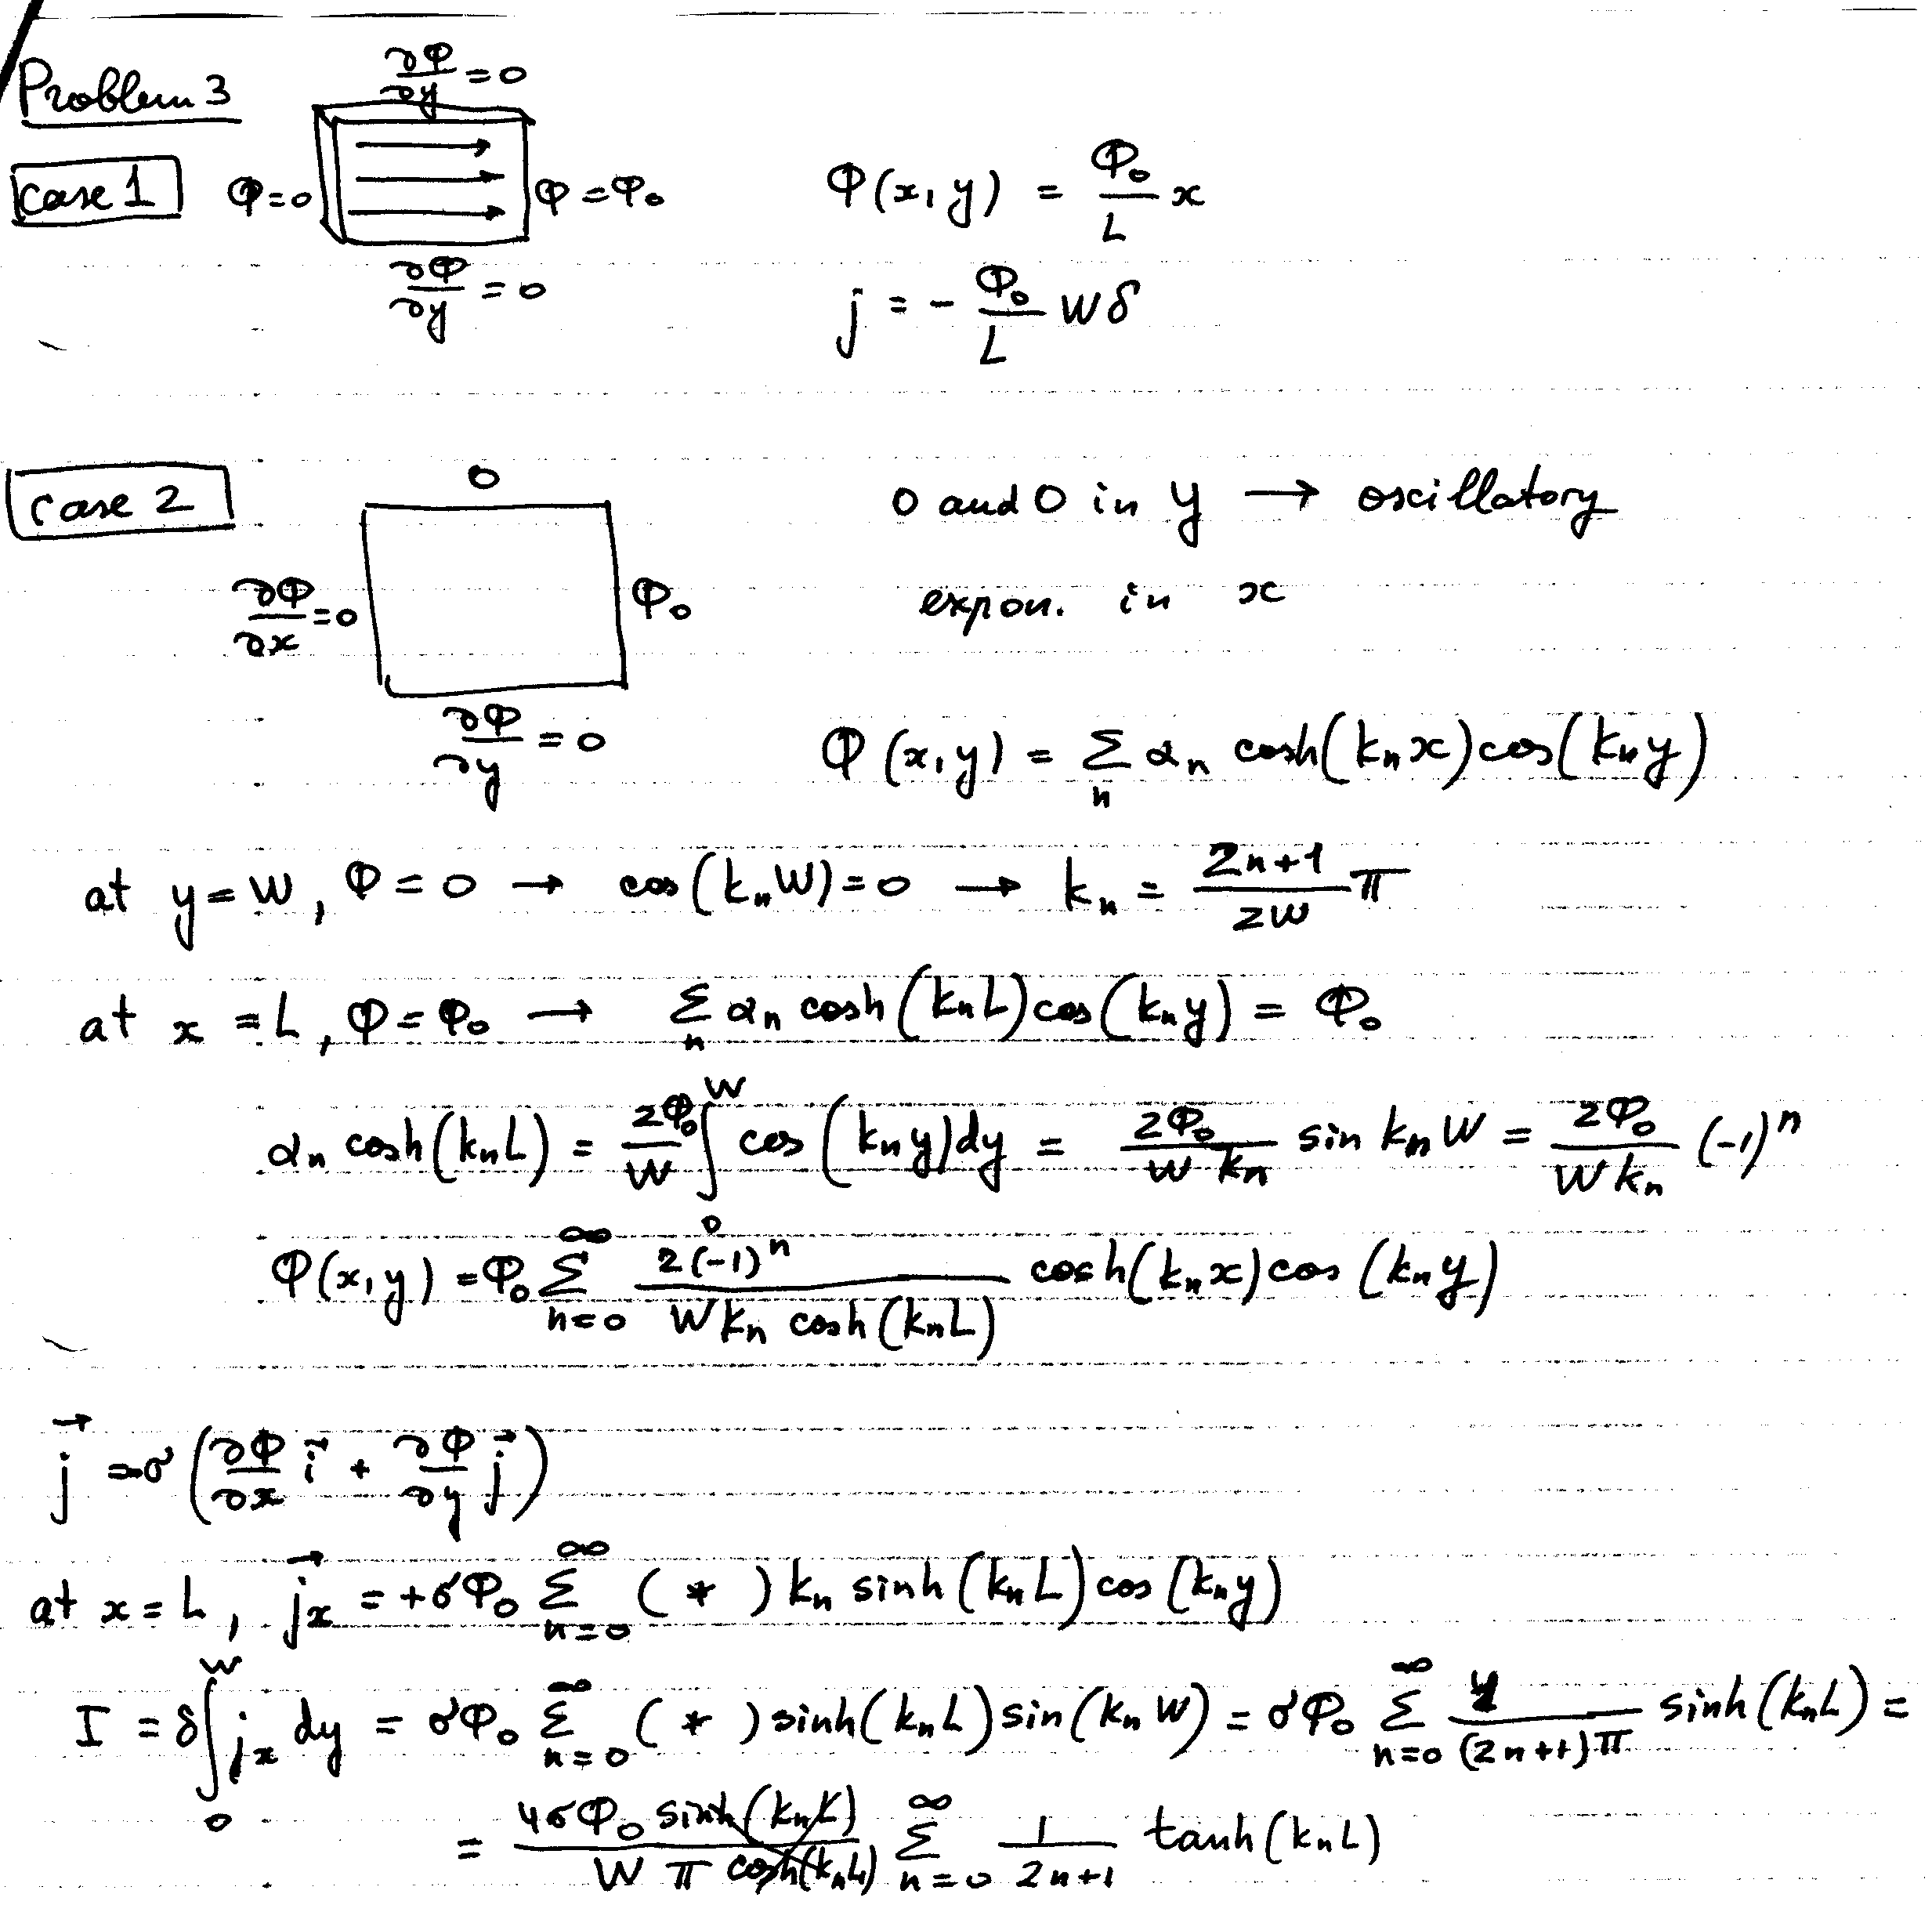 Problem 3
∂Φ/∂y = 0
case 1
Φ=0
Φ=Φ₀
Φ(x,y) = Φ₀/L x
∂Φ/∂y = 0
j = - Φ₀/L W δ
case 2
0
0 and 0 in y → oscillatory
∂Φ/∂x = 0
Φ₀
expon. in x
∂Φ/∂y = 0
Φ(x,y) = Σ_n α_n cosh(k_n x) cos(k_n y)
at y = W, Φ = 0 → cos(k_n W) = 0 → k_n = (2n+1)/(2W) π
at x = L, Φ = Φ₀ → Σ_n α_n cosh(k_n L) cos(k_n y) = Φ₀
α_n cosh(k_n L) = 2Φ₀/W ∫₀^W cos(k_n y) dy = 2Φ₀/(W k_n) sin k_n W = 2Φ₀/(W k_n) (-1)^n
Φ(x,y) = Φ₀ Σ_{n=0}^∞ 2(-1)^n/(W k_n cosh(k_n L)) cosh(k_n x) cos(k_n y)
j⃗ = -σ (∂Φ/∂x i⃗ + ∂Φ/∂y j⃗)
at x = L, j⃗_x = +σΦ₀ Σ_{n=0}^∞ ( * ) k_n sinh(k_n L) cos(k_n y)
I = δ ∫₀^W j_x dy = σΦ₀ Σ_{n=0}^∞ ( * ) sinh(k_n L) sin(k_n W) = σΦ₀ Σ_{n=0}^∞ 4/((2n+1)π) sinh(k_n L) =
= 4σΦ₀ sinh(k_n L)/(W π cosh(k_n L)) Σ_{n=0}^∞ 1/(2n+1) tanh(k_n L)